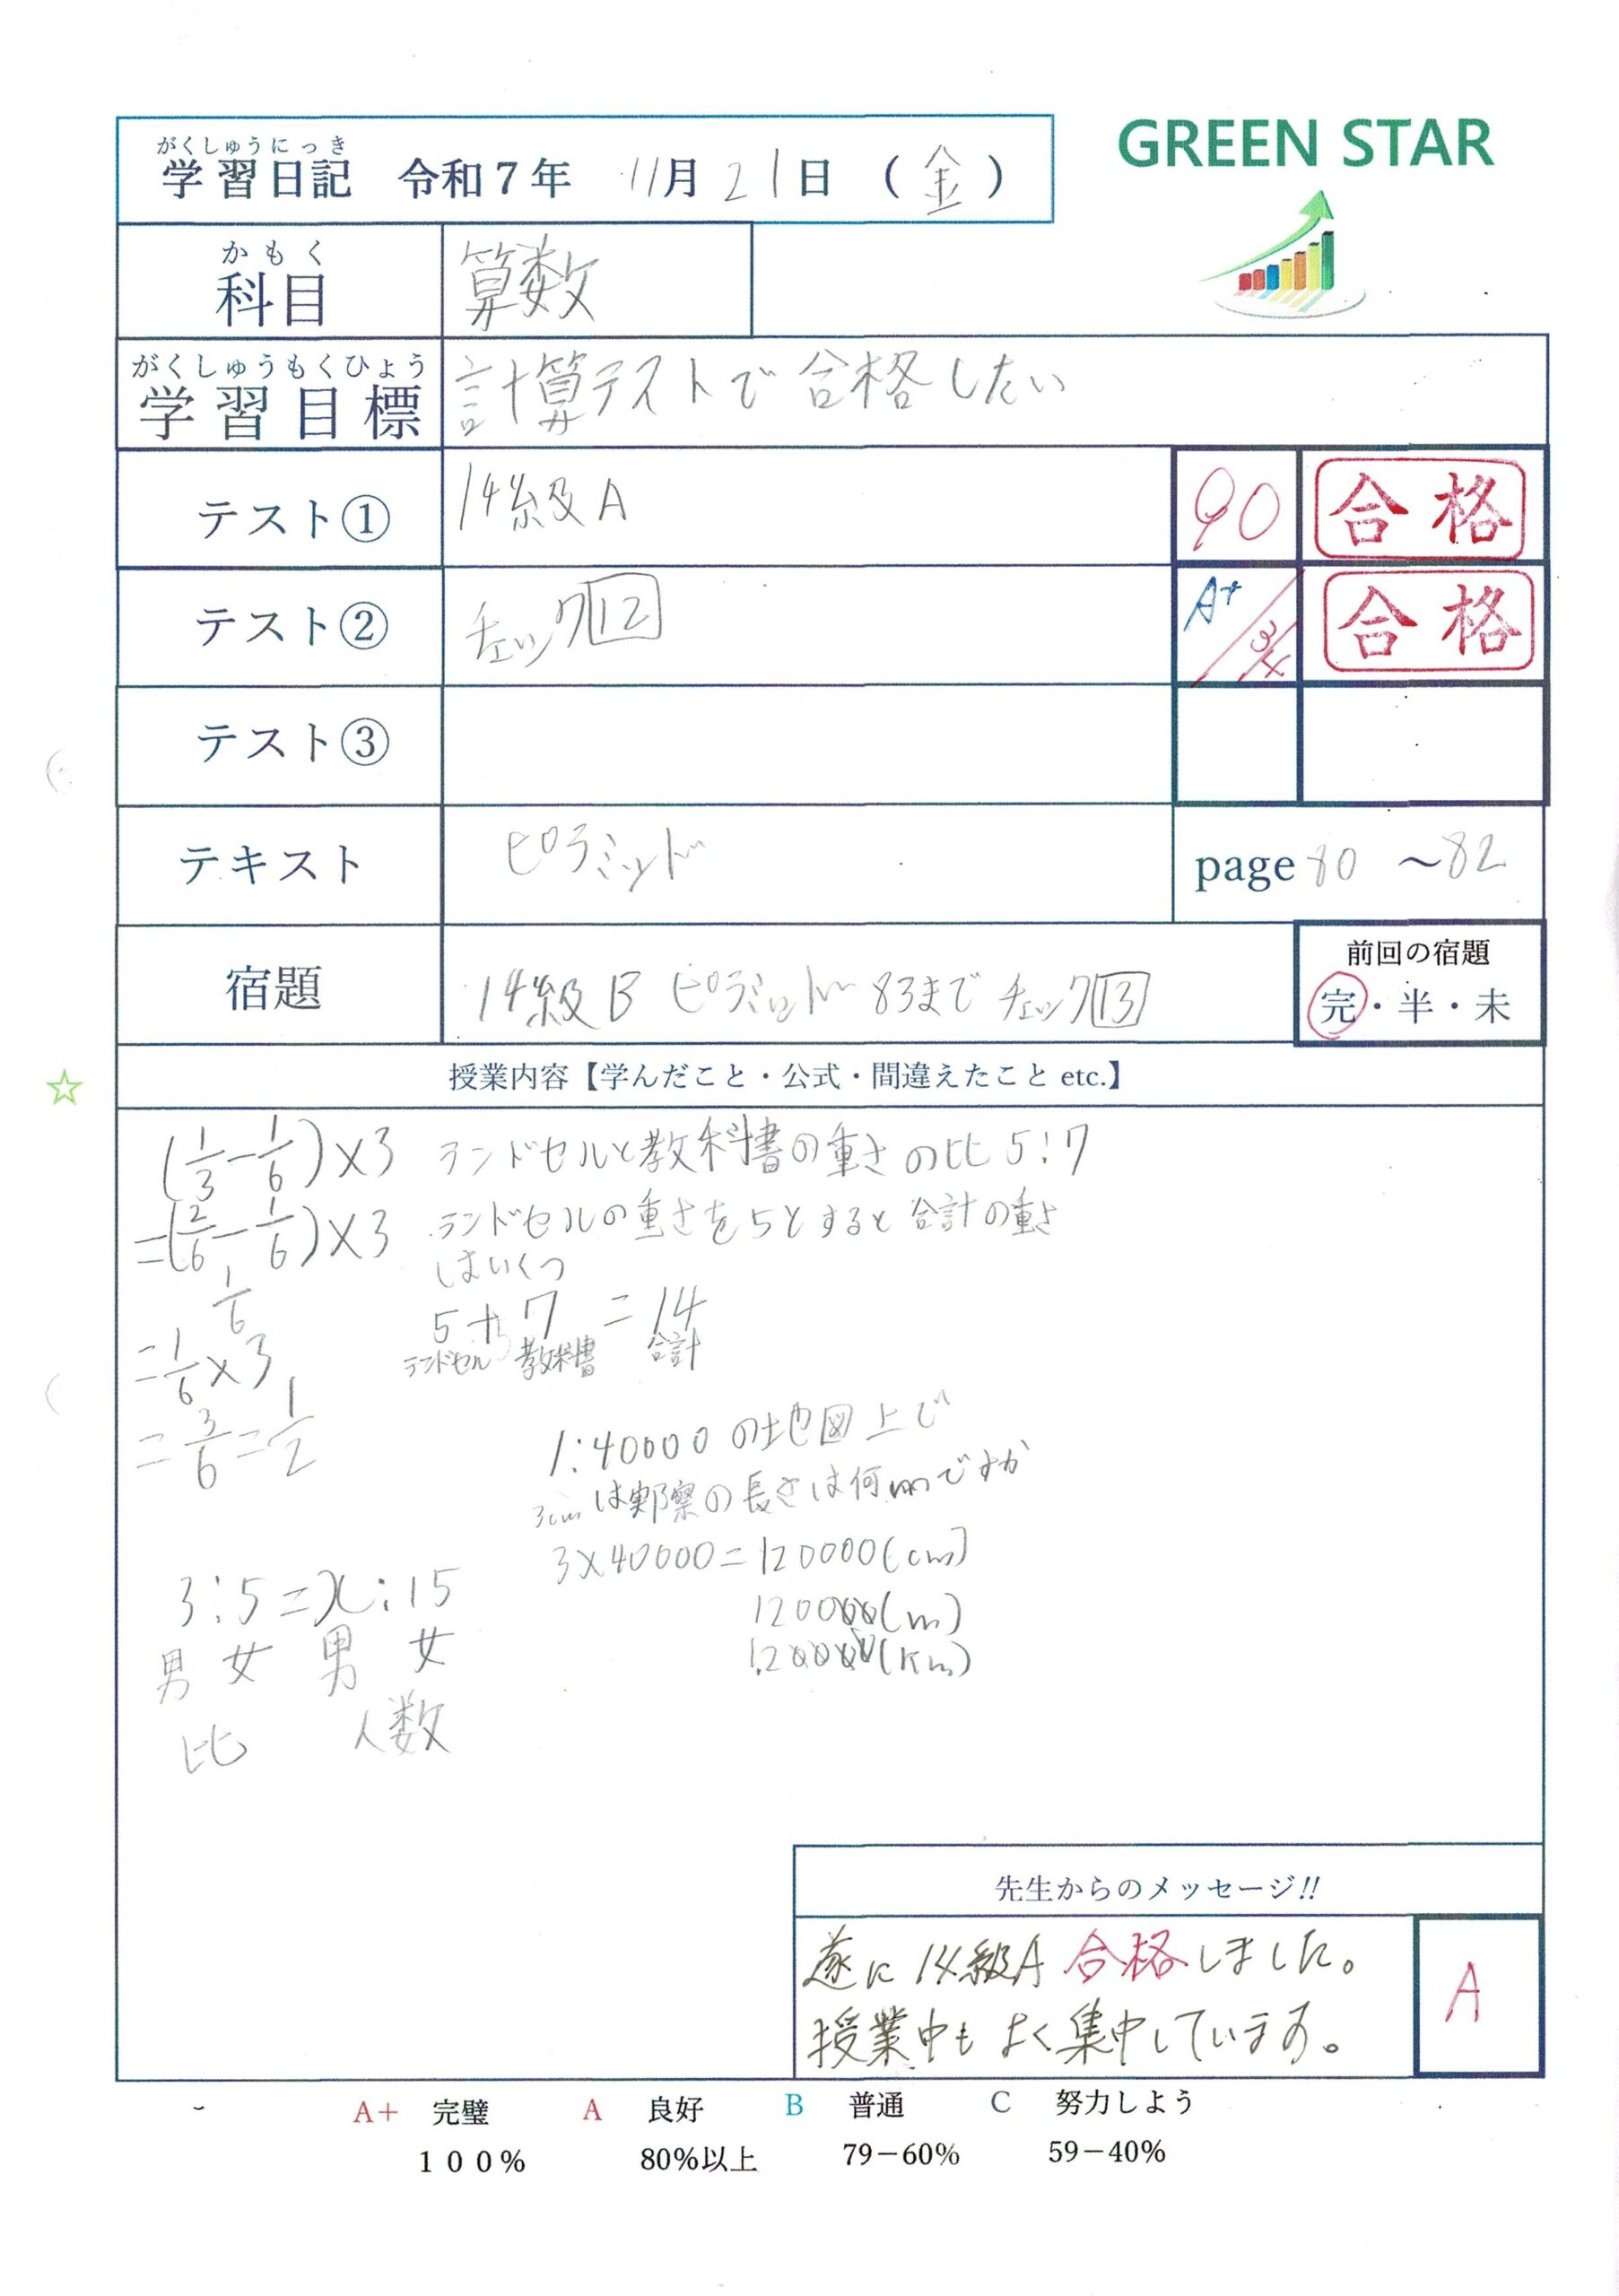 がくしゅうにっき
学習日記 令和7年 11月21日 (金)
GREEN STAR
かもく
科目 算数
がくしゅうもくひょう
学習目標 計算テストで合格したい
テスト① 14級A 90 合格
テスト② チェック12 A+ 合格
テスト③
テキスト ピラミッド page 80 ～82
宿題 14級B ピラミッド83まで チェック13
前回の宿題
完・半・未
授業内容【学んだこと・公式・間違えたこと etc.】
(1/3-1/6)×3
=(2/6-1/6)×3
1/6
=1/6×3
=3/6=1/2
ランドセルと教科書の重さの比5:7
ランドセルの重さを5とすると合計の重さ
はいくつ
5+7=14
ランドセル 教科書 合計
1:40000の地図上で
3cmは実際の長さは何mですか
3×40000=120000(cm)
120000(m)
1.20000(km)
3:5=x:15
男 女 男 女
比 人数
先生からのメッセージ!!
遂に14級A合格しました。
授業中もよく集中しています。
A
A+ 完璧 A 良好 B 普通 C 努力しよう
100% 80%以上 79－60% 59－40%